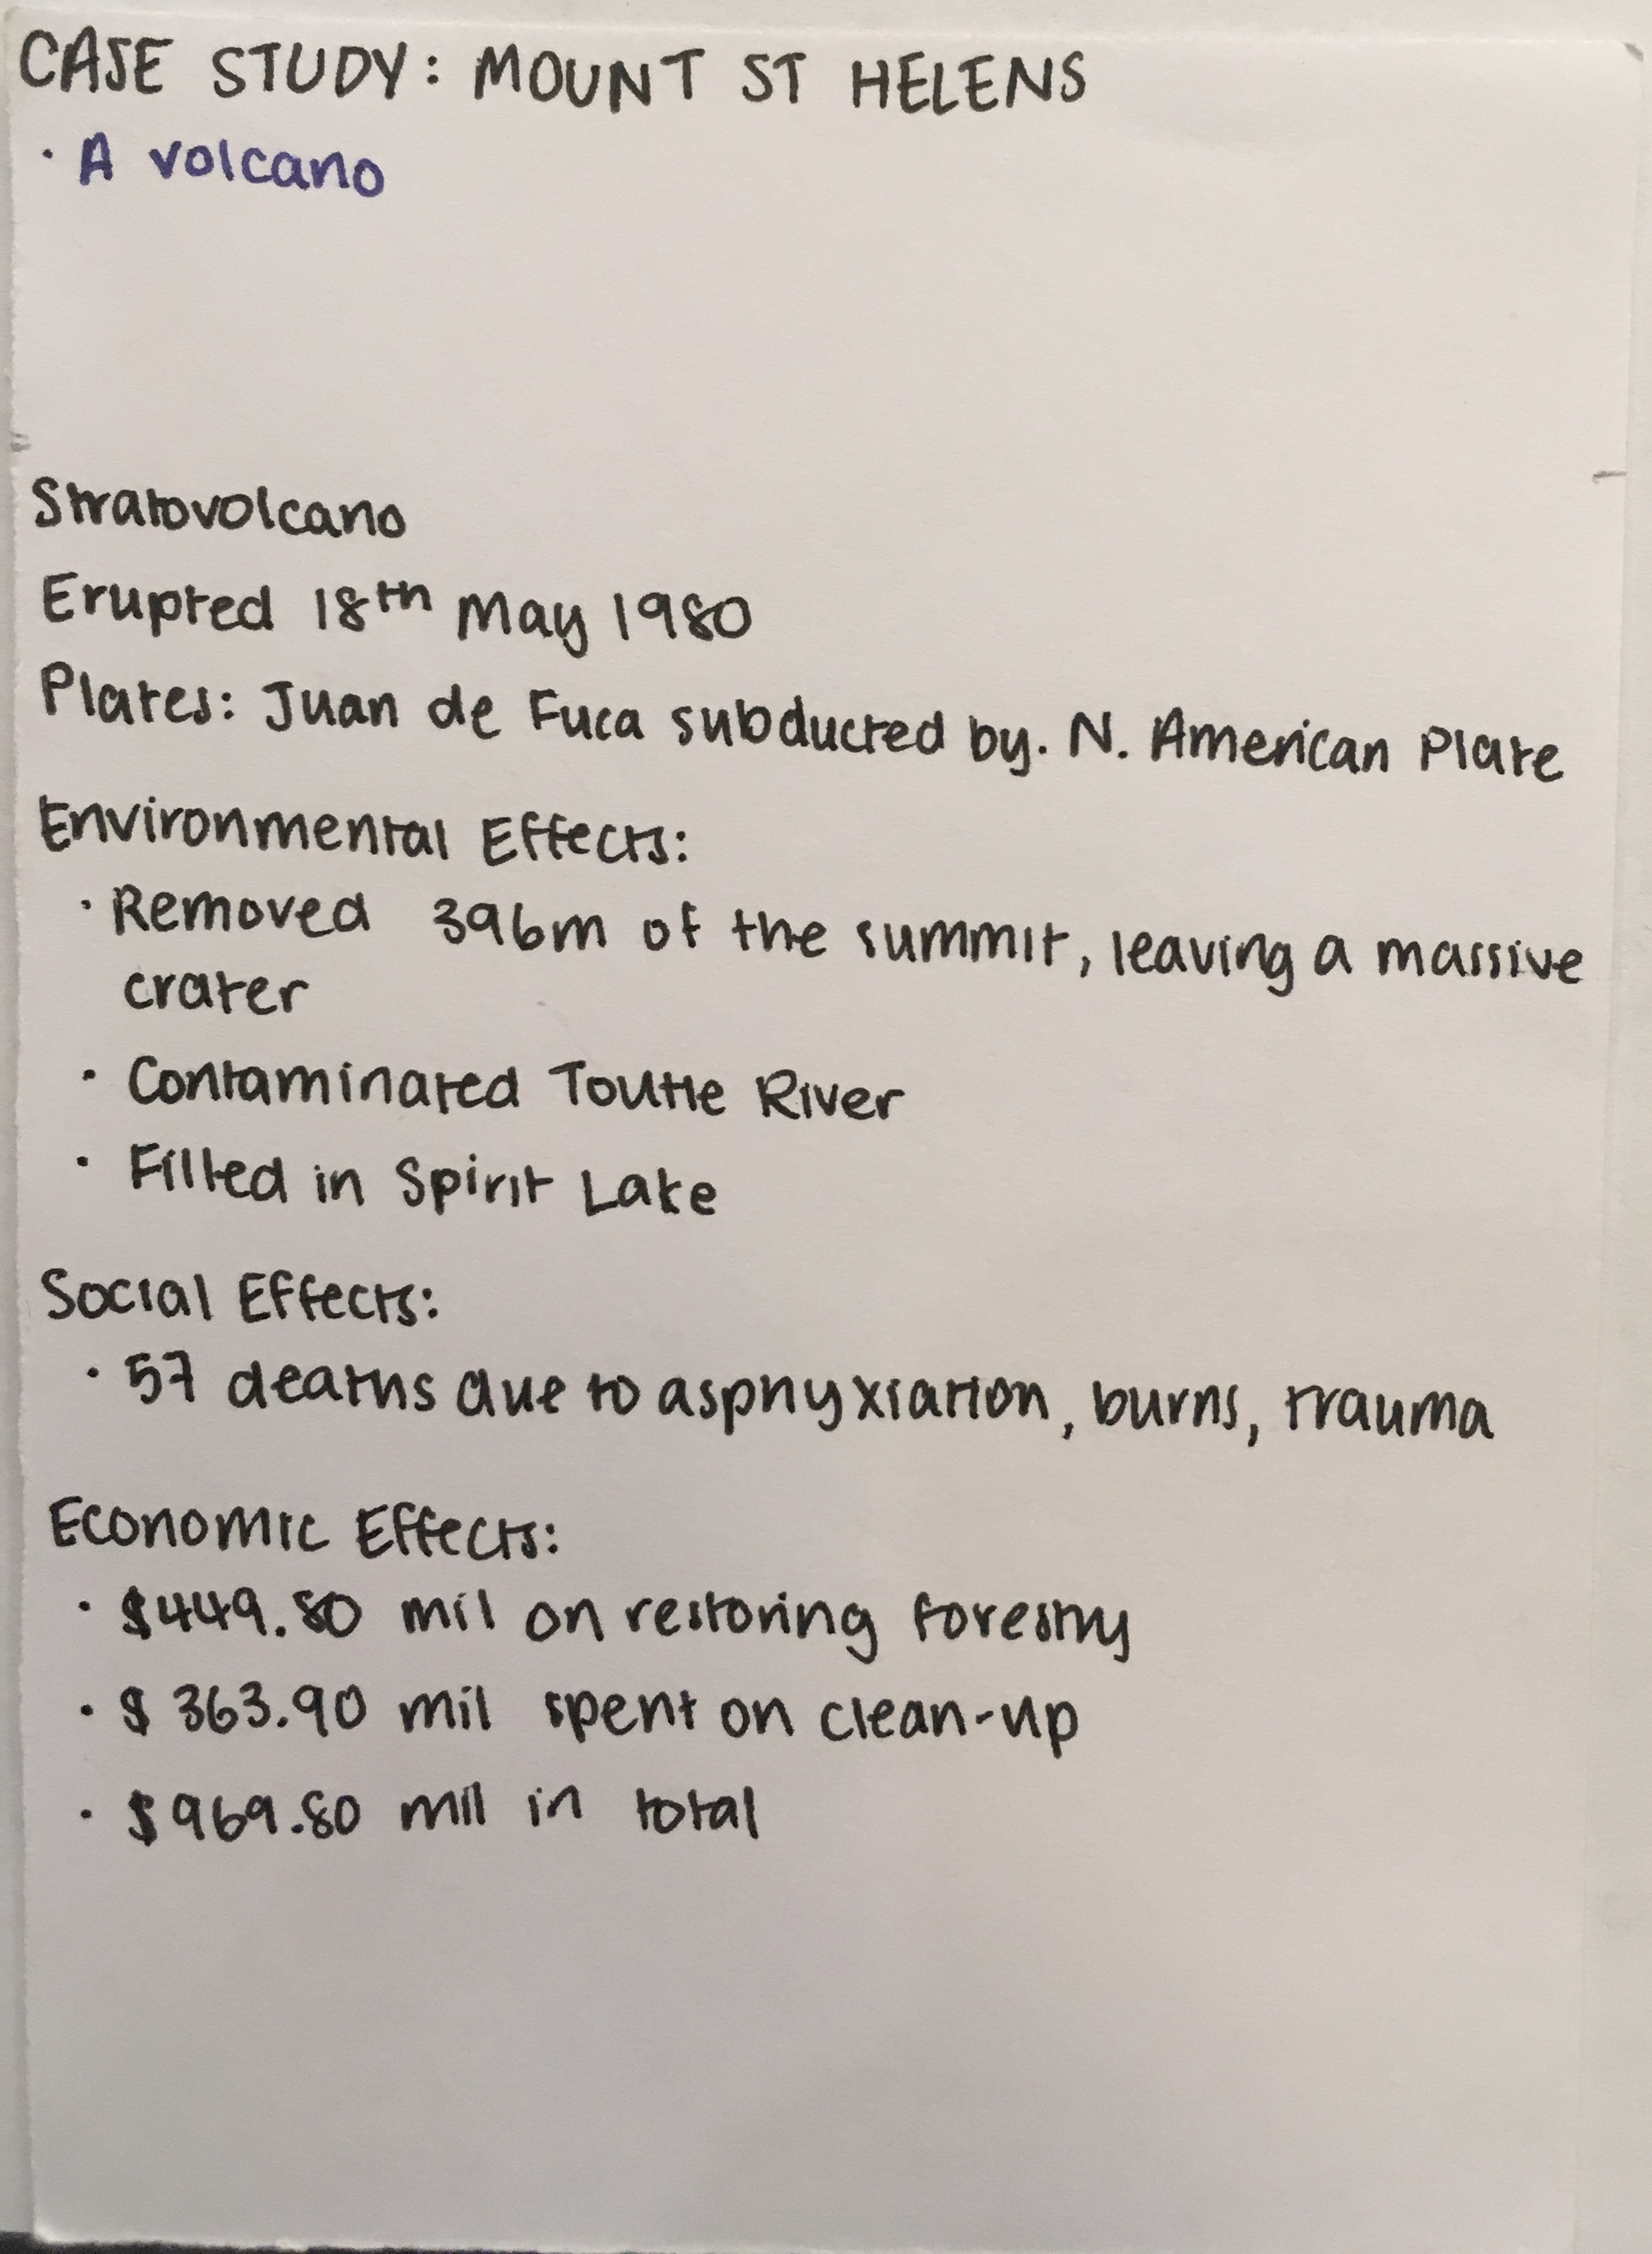 CASE STUDY: MOUNT ST HELENS
· A volcano
Stratovolcano
Erupted 18th May 1980
Plates: Juan de Fuca subducted by. N. American Plate
Environmental Effects:
· Removed 396m of the summit, leaving a massive
crater
· Contaminated Toutle River
· Filled in Spirit Lake
Social Effects:
· 57 deaths due to asphyxiation, burns, trauma
Economic Effects:
· $449.80 mil on restoring forestry
· $363.90 mil spent on clean-up
· $969.80 mil in total